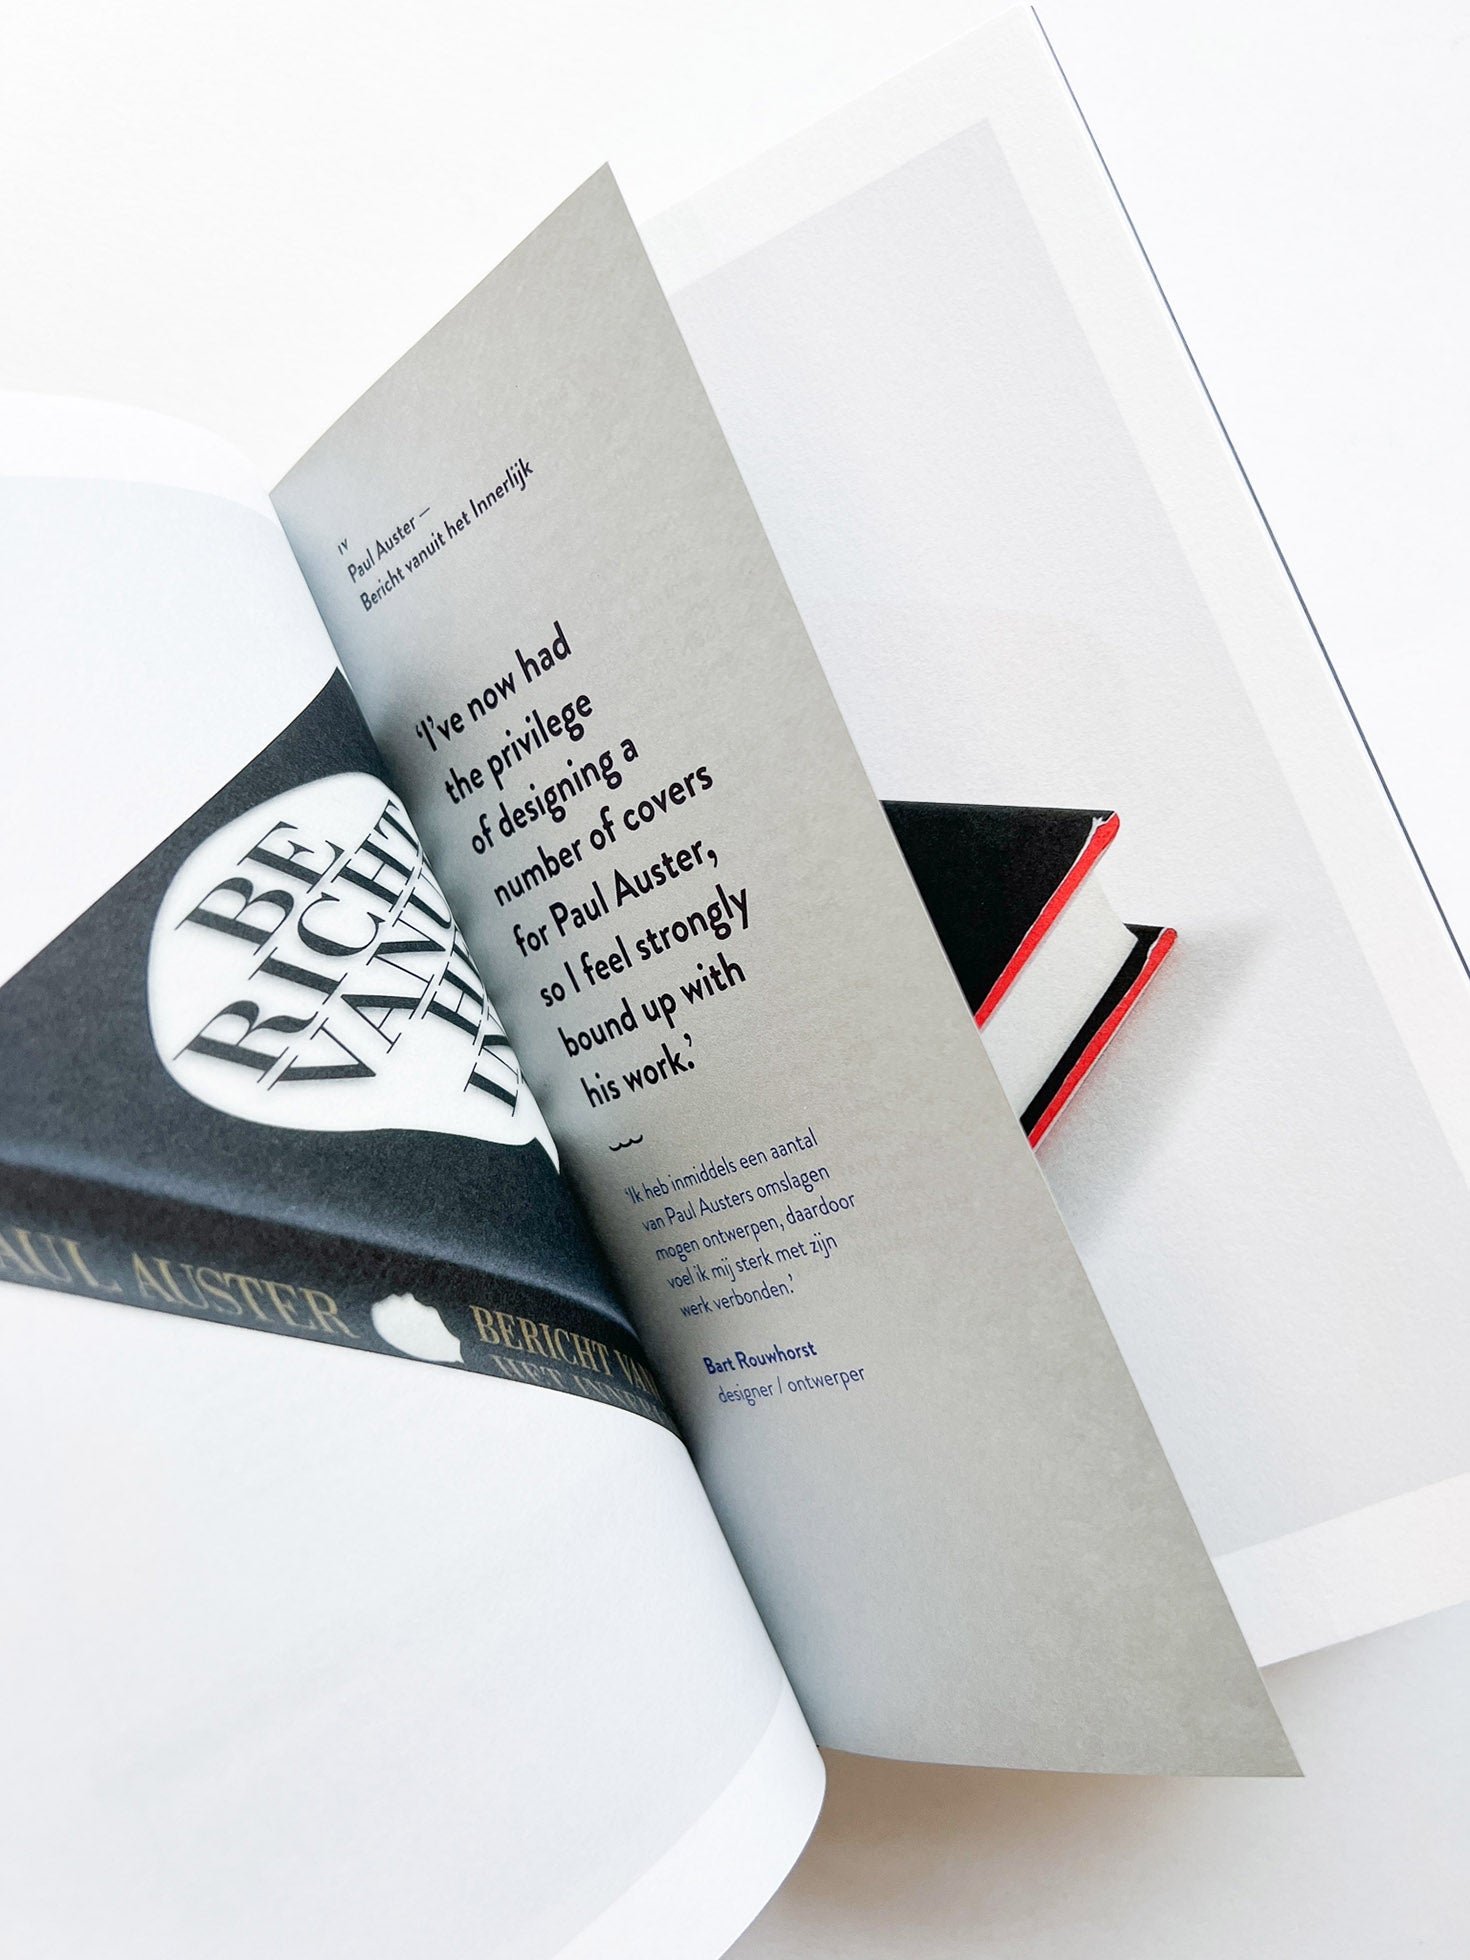 BE
RICHT
VANU
H
IN
AUL AUSTER
BERICHT VAN
HET INNER
IV
Paul Auster —
Bericht vanuit het Innerlijk
‘I’ve now had
the privilege
of designing a
number of covers
for Paul Auster,
so I feel strongly
bound up with
his work.’
‘Ik heb inmiddels een aantal
van Paul Austers omslagen
mogen ontwerpen, daardoor
voel ik mij sterk met zijn
werk verbonden.’
Bart Rouwhorst
designer / ontwerper